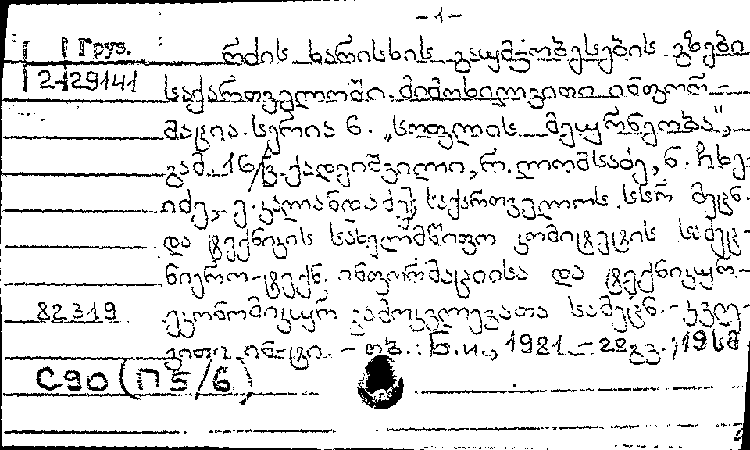 -1-
Груз.
რძის ხარისხის გაუმჯობესების გზები
2-29141
საქართველოში. მიმოხილვითი ინფორ-
მაცია. სერია 6. „სოფლის მეურნეობა“,
გამ. 16/წ. ქადეიშვილი, რ. ლომსაძე, ნ. ჩხე-
იძე, ე. კალანდაძე; საქართველოს სსრ მეცნ.
და ტექნიკის სახელმწიფო კომიტეტის სამეც-
ნიერო-ტექნ. ინფორმაციისა და ტექნიკურ-
82319
ეკონომიკურ გამოკვლევათა სამეცნ.-კვლე-
ვითი ინ-ტი. - თბ.: Б.и., 1981 - 22გვ.; 19სმ
С90(П5/6)